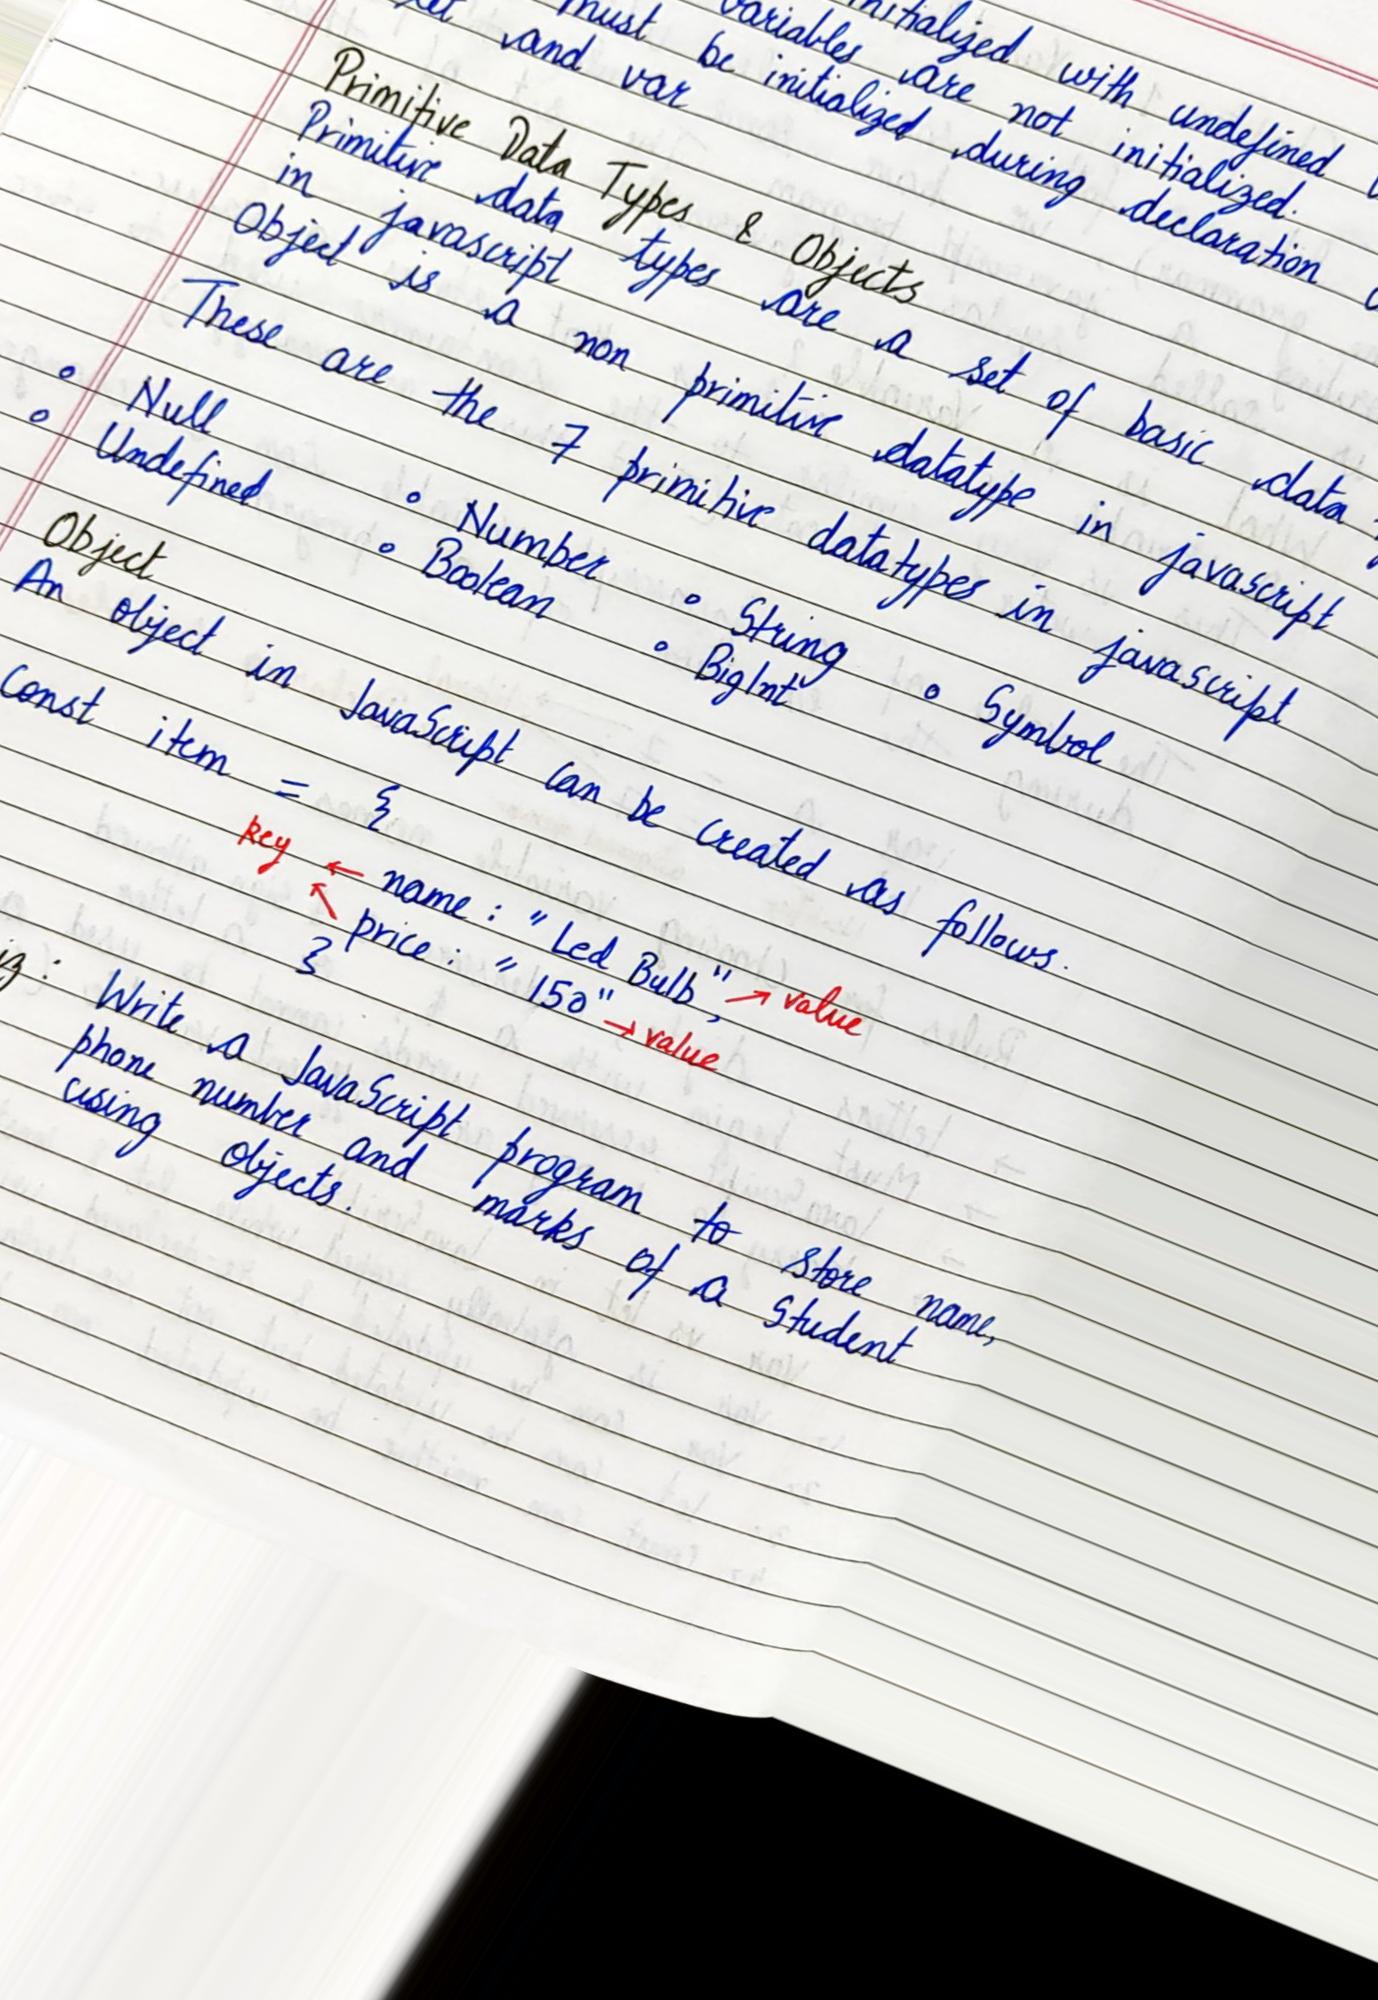 initialized with undefined
variables are not initialized.
must be initialized during declaration
and var
Primitive Data Types & Objects
Primitive data types are a set of basic data
in javascript
Object is a non primitive datatype in javascript
These are the 7 primitive datatypes in javascript
• Null • Number • String • Symbol
• Undefined • Boolean • BigInt
Object
An object in JavaScript can be created as follows.
Const item = {
key ← name : "Led Bulb", → value
price : "150" → value
}
Write a JavaScript program to store name,
phone number and marks of a Student
using objects.